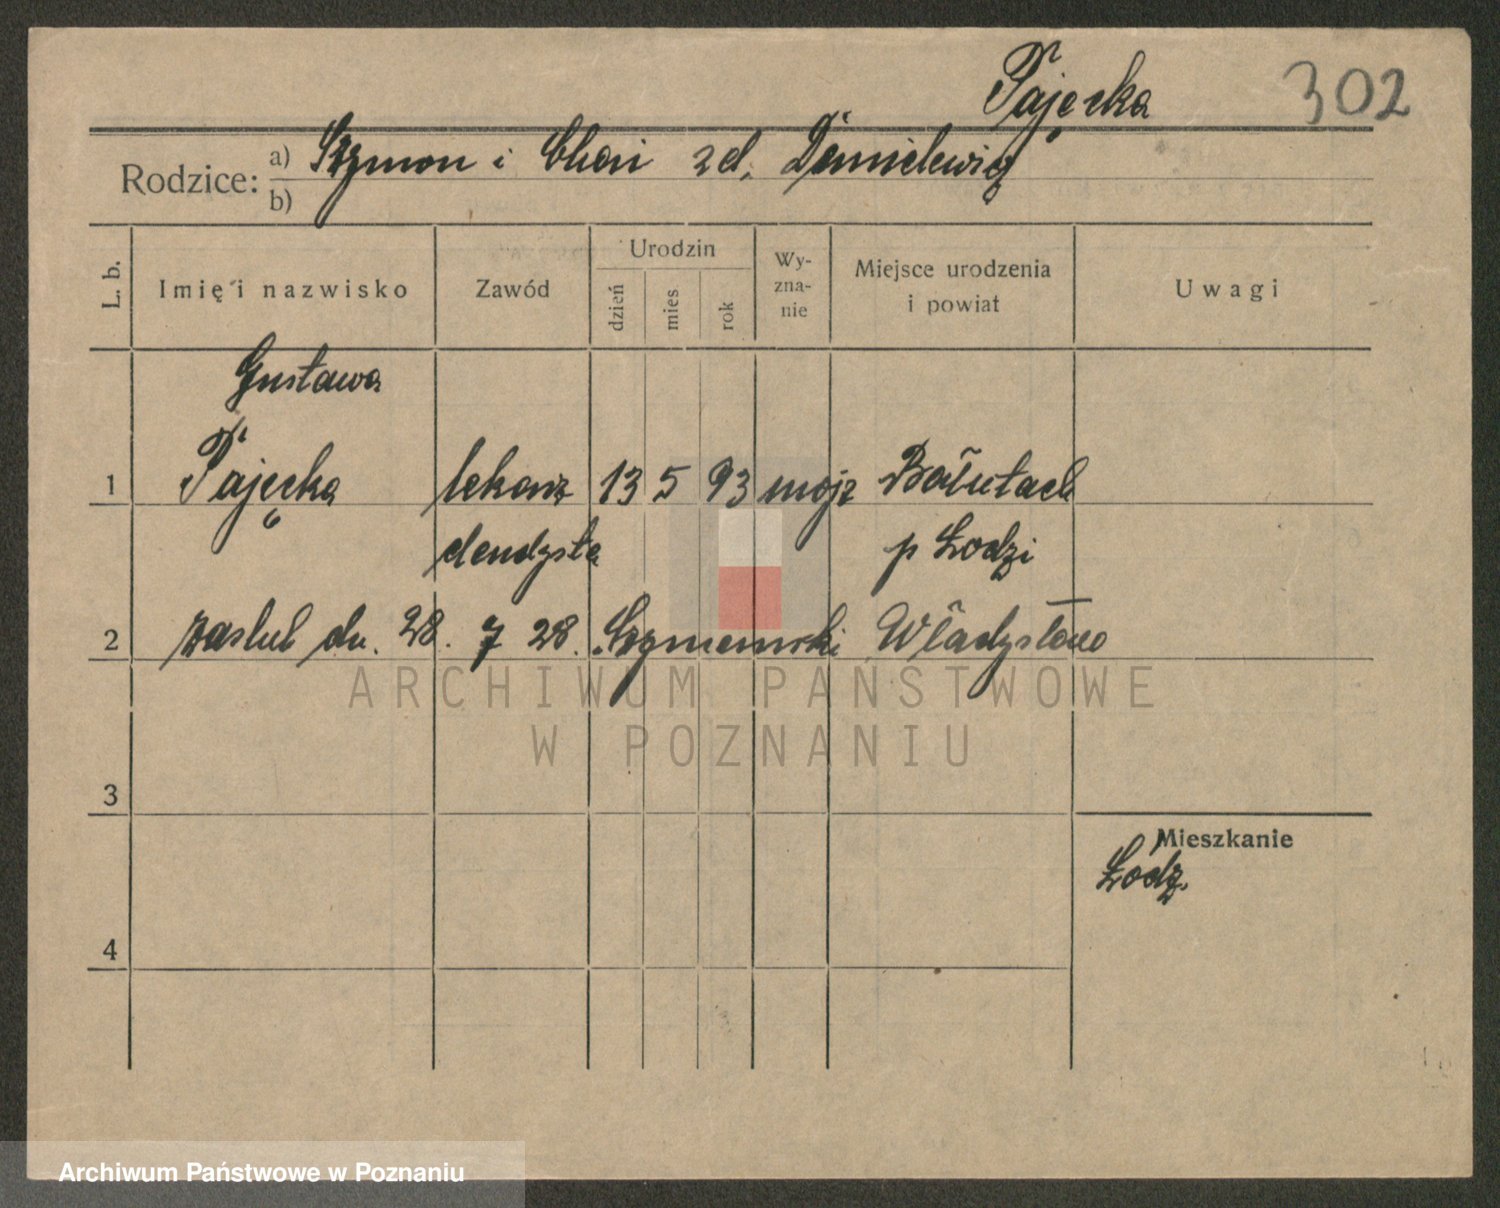 Pajęcka 302
Rodzice: a) Szymon i Chai zd. Danielewicz
b)
L. b. Imię i nazwisko Zawód Urodzin dzień mies rok Wyznanie Miejsce urodzenia i powiat Uwagi
Gustawa
1 Pajęcka lekarz 13 5 93 mojż Bałutach
dendysta p Łodzi
2 zaslub dn. 28. 7 28. Władysław
ARCHIWUM PAŃSTWOWE
W POZNANIU
3
Mieszkanie
Łódz.
4
Archiwum Państwowe w Poznaniu